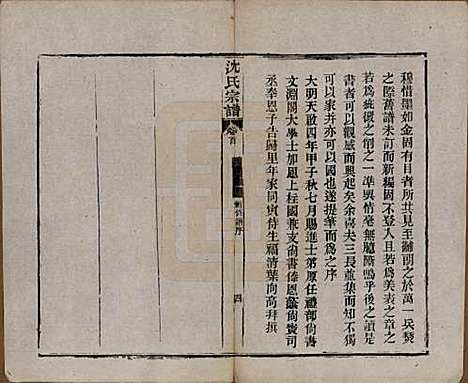 穆惜墨如金固有目者所共見至關朝之於萬一兵燹
之際舊譜未訂而新編固不登人且若為美表之章之
若為疵微之一準輿情毫無臆斷嗚乎後之讀是
書者可以觀感而興起矣余喜夫三長並集而知不獨
可以家并亦可以國也遂提筆而為之序
大明天啟四年甲子秋七月賜進士第原任禮部尚書
文淵閣大學士加恩上柱國兼支尚書俸恩蔭尚寶司
丞奉恩予告歸里年家同寅侍生福清葉向高拜撰
沈氏宗譜
卷首
序
四